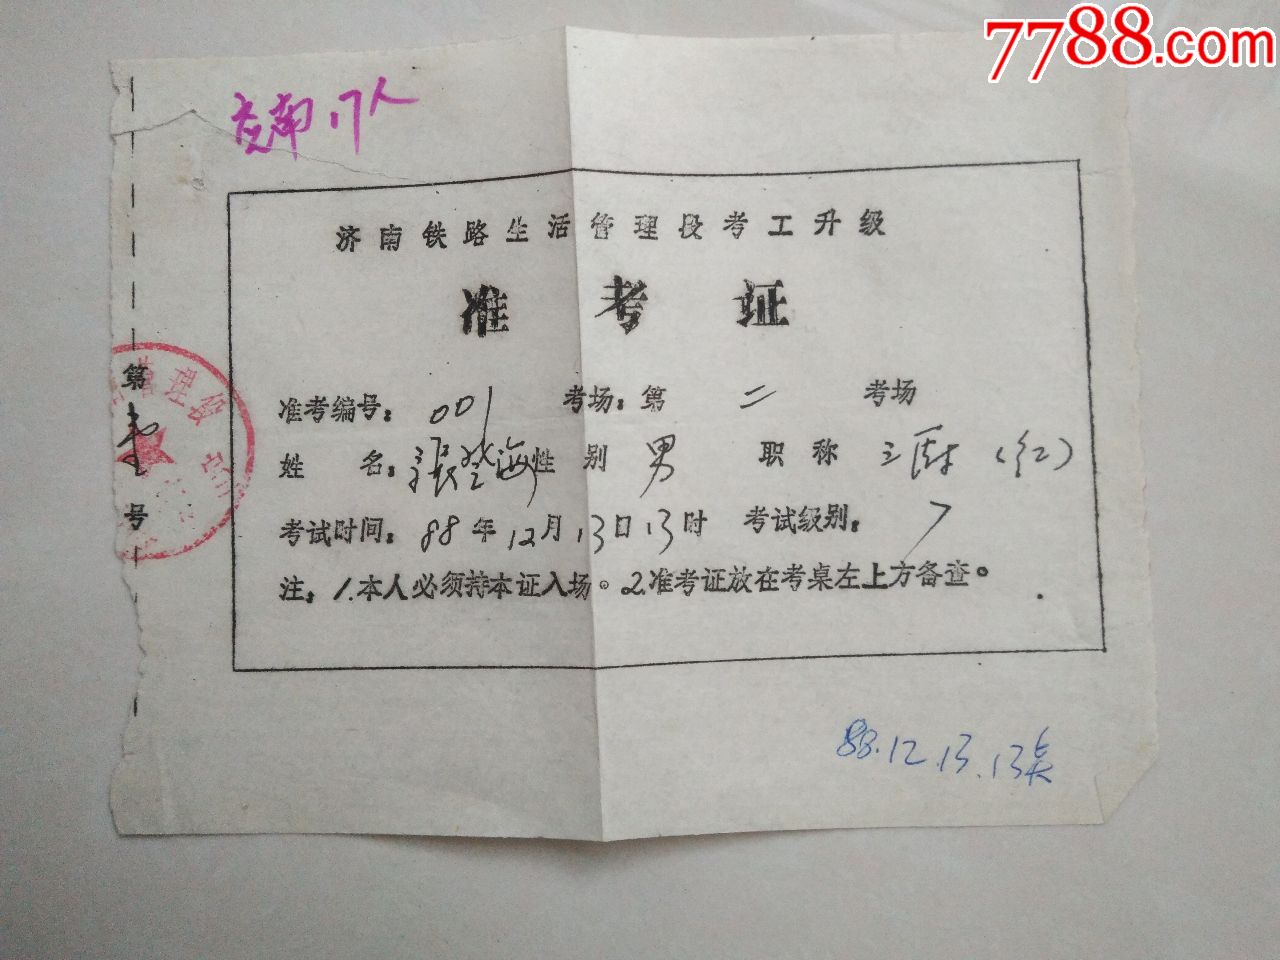 7788.com
17人
济南铁路生活管理段考工升级
准考证
准考编号：001 考场：第 二 考场
姓 名：张登海 性 别 男 职 称 (红)
考试时间：88年12月13日13时 考试级别：7
注：1.本人必须持本证入场。2.准考证放在考桌左上方备查。
第 壹 号
管理段
88.12.13.13点